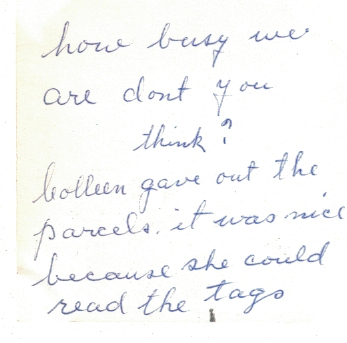 how busy we
are dont you
think?
Colleen gave out the
parcels. it was nice
because she could
read the tags